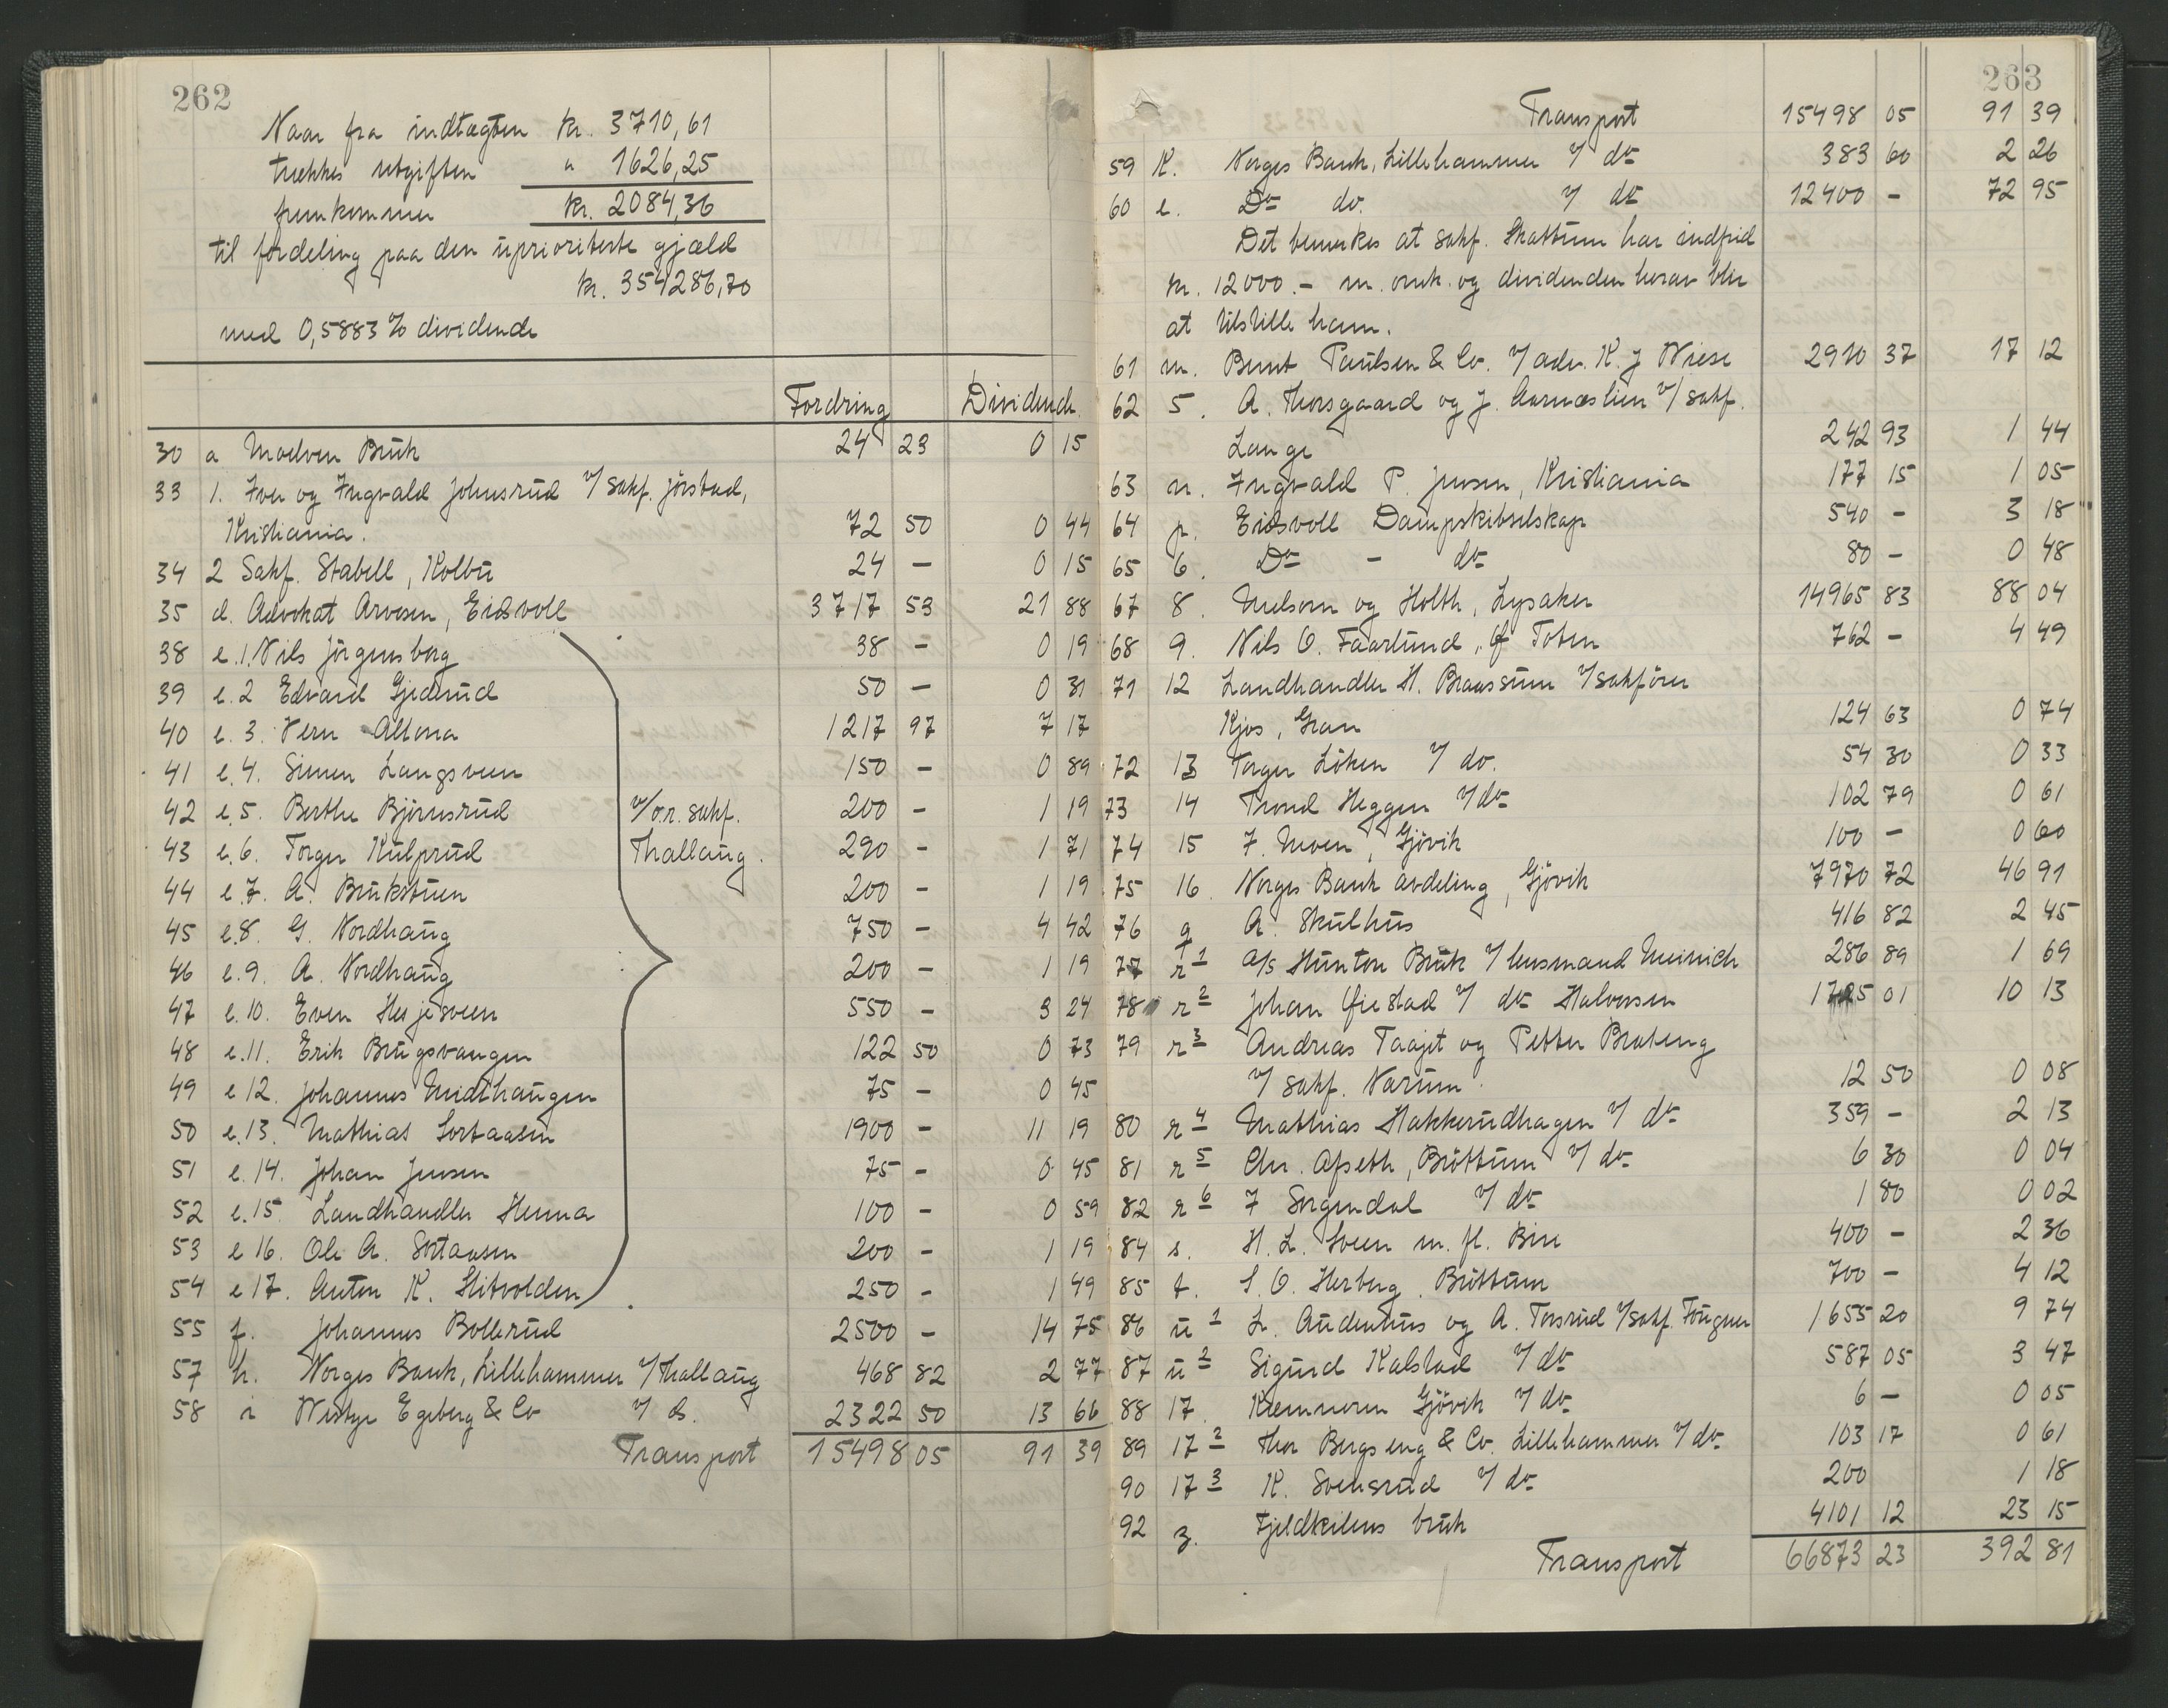 262
Naar fra indtægten kr. 3710,61
trækkes utgiften " 1626,25
fremkommer kr. 2084,36
til fordeling paa den uprioriterte gjæld
kr. 354286,70
med 0,5883 % dividende
Fordring Dividende
30 a Moelven Bruk 24 23 0 15
33 1. Iver og Ingvald Johnsrud v/ sakf. Jörstad,
Kristiania. 72 50 0 44
34 2 Sakf. Stabell, Kolbu 24 — 0 15
35 d. Advokat Arvesen, Eidsvoll 3717 53 21 88
38 e.1. Nils Jörgensborg 38 — 0 19
39 e.2 Edvard Gjederud 50 — 0 31
40 e.3. Vern Altona 1217 97 7 17
41 e.4. Simen Langsveen 150 — 0 89
42 e.5. Berthe Björnsrud v/o.r. sakf. 200 — 1 19
43 e.6. Torger Kulprud Thallaug. 290 — 1 71
44 e.7. A. Brukstuen 200 — 1 19
45 e.8. G. Nordhaug 750 — 4 42
46 e.9. A. Nordhaug 200 — 1 19
47 e.10. Even Hesjesveen 550 — 3 24
48 e.11. Erik Brugsvangen 122 50 0 73
49 e 12. Johannes Midthaugen 75 — 0 45
50 e.13. Mathias Sortaasen 1900 — 11 19
51 e.14. Johan Jensen 75 — 0 45
52 e.15. Landhandler Henna 100 — 0 59
53 e 16. Ole A. Sortaasen 200 — 1 19
54 e 17. Anton K. Slitvolden 250 — 1 49
55 f. Johannes Bollerud 2500 — 14 75
57 h. Norges Bank, Lillehammer v/ Thallaug 468 82 2 77
58 i Westye Egeberg & Co v/ d. 2322 50 13 66
Transport 15498 05 91 39
263
Transport 15498 05 91 39
59 K. Norges Bank, Lillehammer v/ do 383 60 2 26
60 l. Do do. v/ do 12400 — 72 95
Det bemerkes at sakf. Skattum har indfrid
kr. 12000.- m. omk. og dividenden herav blir
at tilstille ham.
61 m. Bernt Paulsen & Co. v/ adv. K. J Wiese 2910 37 17 12
62 5. A. Thorsgaard og J. Aarnæslien v/ sakf.
Lange 242 93 1 44
63 n. Ingvald P. Jensen, Kristiania 177 15 1 05
64 p. Eidsvoll Dampskibselskap 540 — 3 18
65 6. Do - do 80 — 0 48
67 8. Nielsen og Holth, Lysaker 14965 83 88 04
68 9. Nils O. Faarlund, Ø Toten 762 — 4 49
71 12 Landhandler H. Braassum v/ sakfører
Kjos, Gran 124 63 0 74
72 13 Torger Löken v/ do. 54 30 0 33
73 14 Trond Heggen v/ do 102 79 0 61
74 15 F. Moen, Gjövik 100 — 0 60
75 16. Norges Bank avdeling, Gjövik 7970 72 46 91
76 q A. Skulhus 416 82 2 45
77 r 1 a/s Hunton Bruk v/ lensmand Meinich 286 89 1 69
78 r 2 Johan Gjestad v/ do Halvorsen 1725 01 10 13
79 r 3 Andreas Taajet og Petter Brateng
v/ sakf. Narum. 12 50 0 08
80 r 4 Mathias Hakkerudhagen v/ do 359 — 2 13
81 r 5 Chr. Afseth, Bröttum v/ do 6 30 0 04
82 r 6 F Sorgendal v/ do 1 80 0 02
84 s. H. L. Sveen m. fl. Biri 400 — 2 36
85 t. S. O. Herberg. Bröttum 700 — 4 12
86 u 1 L. Audenhus og A. Torsrud v/ sakf. Fougner 1655 20 9 74
87 u 2 Sigurd Kalstad v/ do 587 05 3 47
88 17. Kemneren Gjövik v/ do 6 — 0 05
89 17 2 Thor Bergseng & Co. Lillehammer v/ do 103 17 0 61
90 17 3 K. Svensrud v/ do 200 1 18
92 z. Fjeldkilens bruk 4101 12 23 15
Transport 66873 23 392 81